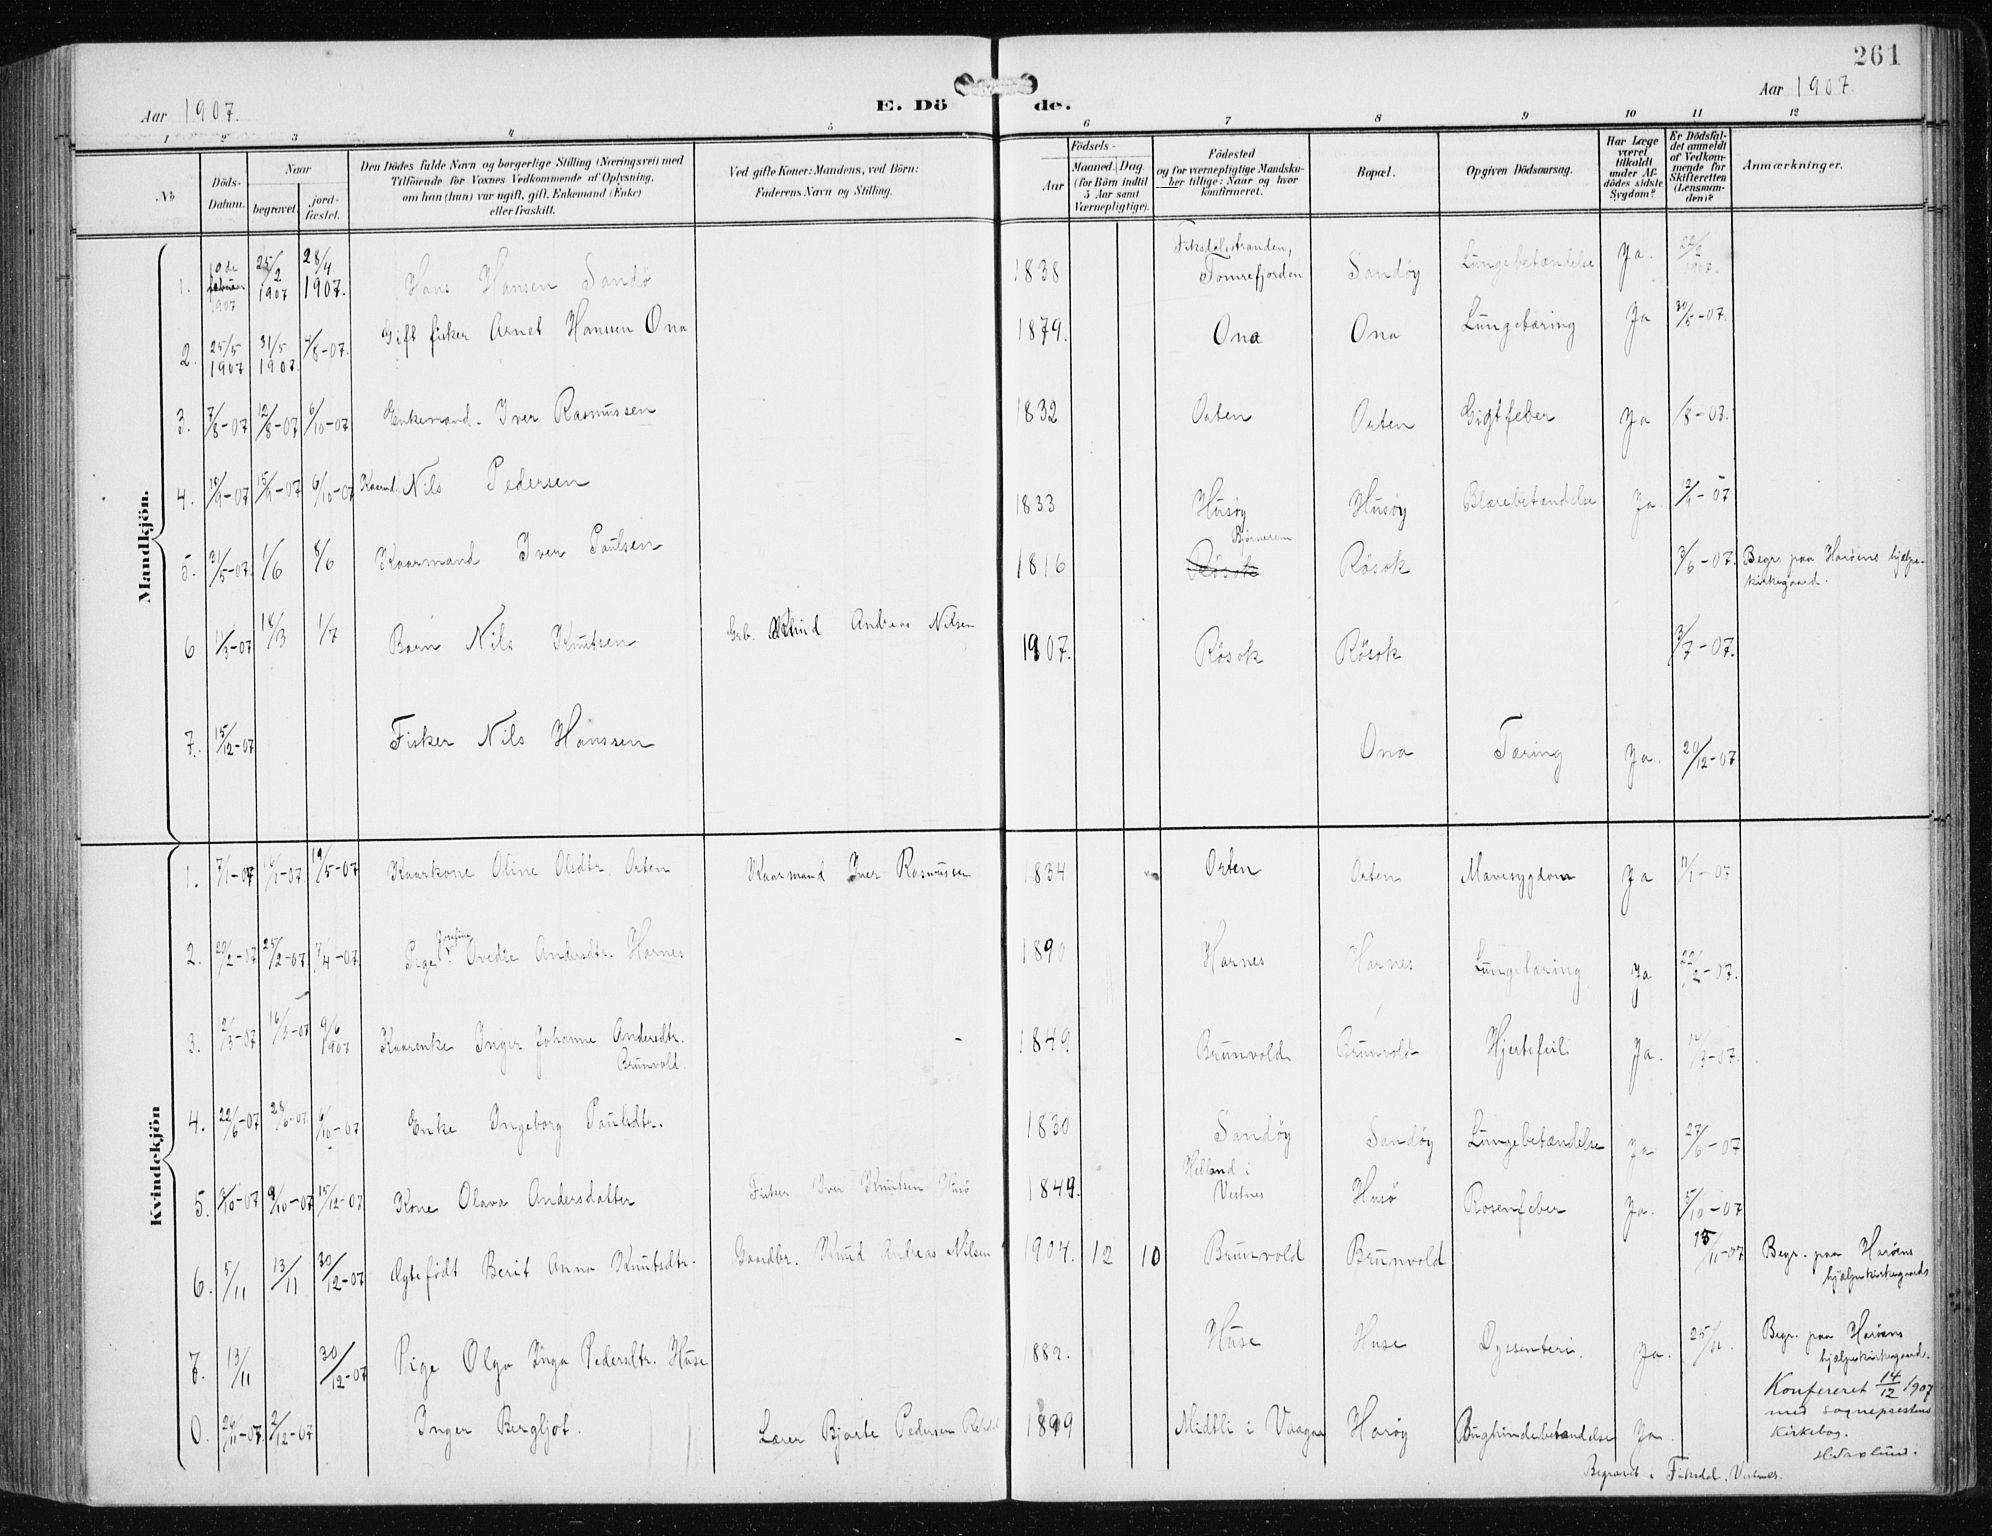 261
Aar 1907.
E. Dö de.
Aar 1907.
1 2 3 4 5 6 7 8 9 10 11 12
No
Döds-Datum.
Naar
begravet.
jord-fæstet.
Den Dödes fulde Navn og borgerlige Stilling (Næringsvei) med
Tilföiende for Voxnes Vedkommende af Oplysning,
om han (hun) var ugift, gift, Enkemand (Enke)
eller fraskilt.
Ved gifte Koner: Mandens, ved Börn:
Faderens Navn og Stilling.
Födsels-
Aar
Maaned. Dag.
(for Börn indtil
5 Aar samt
Værnepligtige).
Födested
og for værnepligtige Mandska-
ber tillige: Naar og hvor
konfirmeret.
Bopæl.
Opgiven Dödsaarsag.
Har Læge
været
tilkaldt
under Af-
dödes sidste
Sygdom?
Er Dödsfal-
det anmeldt
af Vedkom-
mende for
Skifteretten
(Lensman-
den)?
Anmærkninger.
Mandkjön.
1. 19de februar 1907 25/2 1907 28/4 1907. Hans Hansen Sandö 1838 Fiksdalstranden, Tomrefjorden Sandöy Lungebetændelse Ja. 22/2 1907.
2. 25/5 1907 31/5 1907. 4/8-07. Gift fisker Arnet Hanssen Ona 1879. Ona Ona Lungetæring Ja 30/5-07.
3. 7/8-07 12/8-07 6/10-07 Enkemand. Iver Rasmussen 1832 Orten Orten Gigtfeber Ja /8-07.
4. 10/9-07 15/9-07 6/10-07 Kaarmd. Nils Pedersen 1833 Husöy Husöy Blærebetændelse Ja. 12/9-07
5. 31/5-07. 1/6 8/6 Kaarmand Iver Paulsen 1816 Björnerem Rösok Rösok 3/6-07. Begr. paa Haröens hjælpe-
kirkegaard.
6 11/3-07 18/3 1/7 Barn Nils Knutsen Grb. Knud Andreas Nilsen 1907. Rösok Rösok 3/7-07.
7. 15/12-07 Fisker Nils Hanssen Ona Tæring Ja. 20/12-07
Kvindekjön
1. 7/1-07 /1-07. 19/5-07 Kaarkone Oline Olsdtr. Orten Kaarmand Iver Rasmussen 1834 Orten Orten Mavesygdom Ja 11/1-07
2. 20/2-07 25/2-07. 7/4-07. Pige Josefine Ovedie Andersdtr. Harnes 1890 Harnes Harnes Lungetæring Ja 22/2-07.
3. 2/3-07 16/3-07 9/6 1907 Kaarenke Inger Johanne Andersdtr.
Brunvold. 1849 Brunvold Brunvold Hjertefeil Ja. 12/3-07.
4. 22/6-07 28/6-07 6/10-07 Enke Ingeborg Paulsdtr. 1830 Sandöy Sandöy Lungebetændelse Ja 27/6-07
5. 2/10-07 9/10-07 15/12-07 Kone Olava Andersdatter Fisker Iver Knutsen Husö 1849. Helland i Vestnes Husö Rosenfeber Ja. 5/10-07
6. 5/11 13/11 30/12-07 Ægtefödt Berit Anna Knutsdtr. Gaardbr. Knud Andreas Nilsen 1904. 12 10 Brunvold Brunvold 15/11-07 Begr. paa Haröens
hjælpekirkegaards
7. 13/11 30/12-07 Pige Olga Inga Pedersdtr. Huse 1882. Huse Huse Dyssenteri. Ja. 25/11 Begr. paa Haröens
hjælpekirkegaards.
Konfereret 14/12 1907
med sognepræstens
Kirkebog.
0. 26/11-07. 2/12-07 Inger Bergljot. Lærer Bjarte Pedersen 1899 Midtli i Vaagan Haröy Bughindebetændelse Ja.
Begravet i Fiksdal, Vestnes.